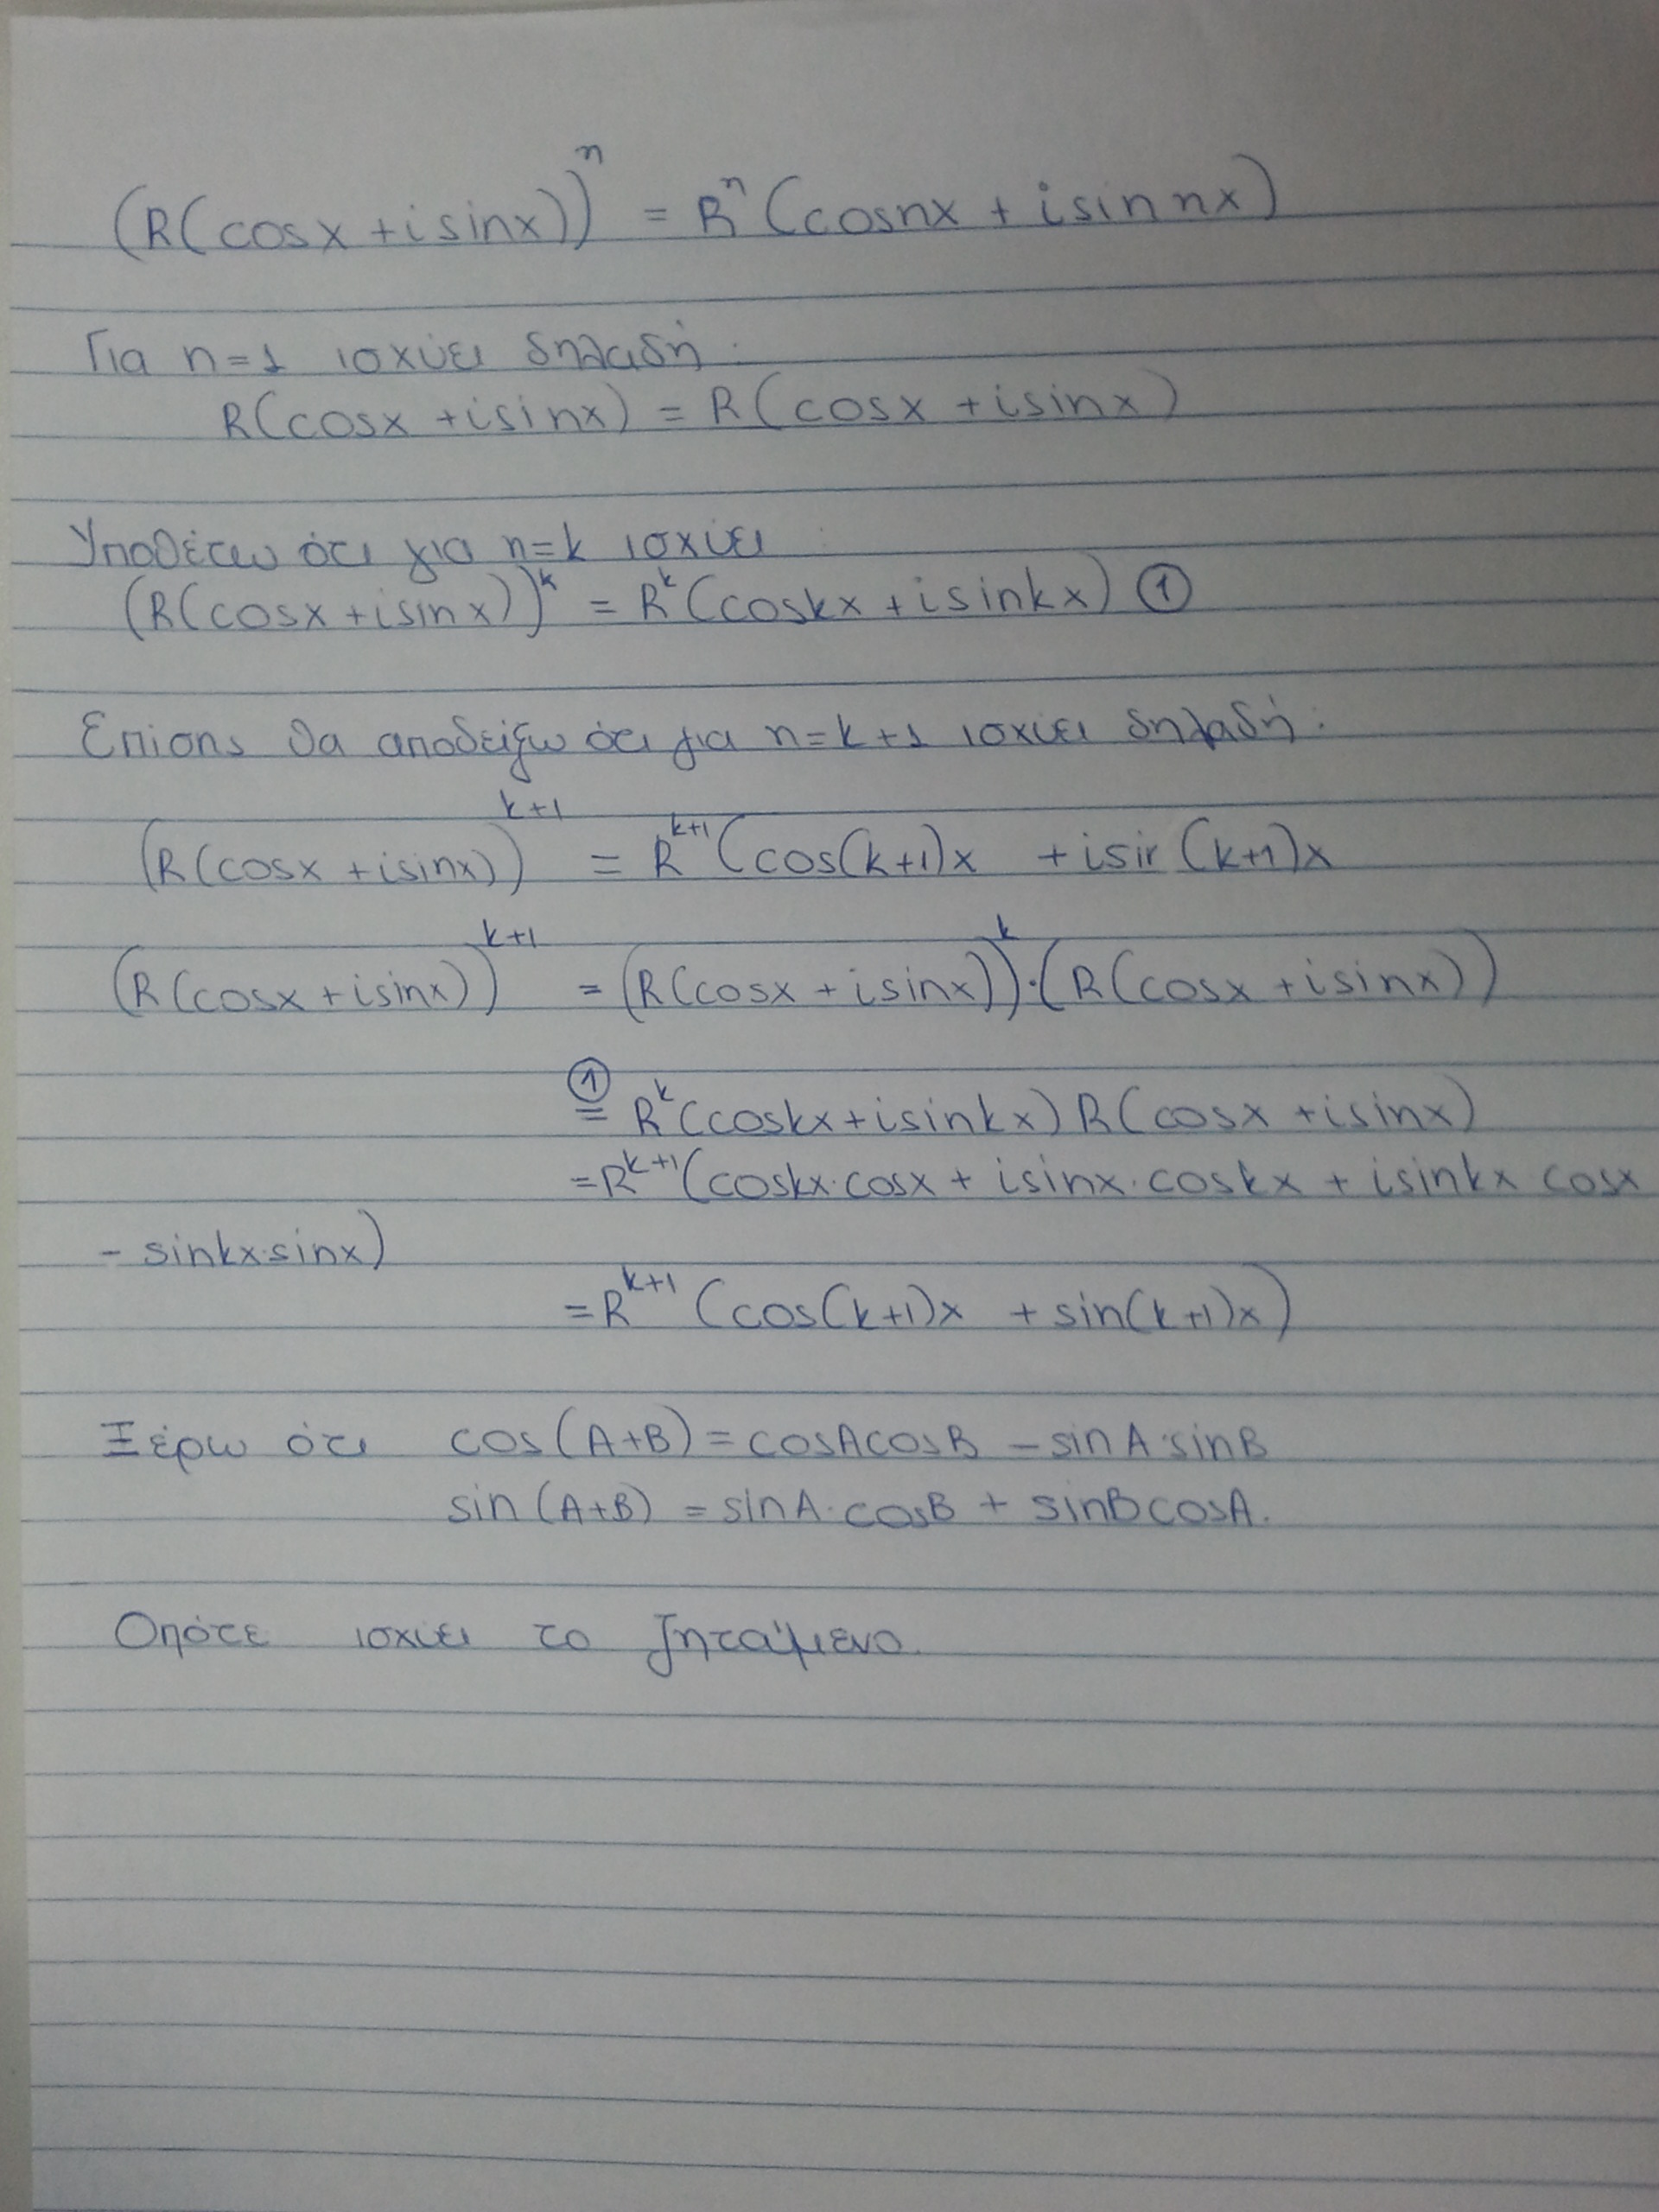 (R(cosx + isinx))ⁿ = Rⁿ (cosnx + isin nx)
Για n=1 ισχύει δηλαδή:
R(cosx + isinx) = R(cosx + isinx)
Υποθέτω ότι για n=k ισχύει
(R(cosx + isinx))ᵏ = Rᵏ(coskx + isinkx) ①
Επίσης θα αποδείξω ότι για n=k+1 ισχύει δηλαδή:
(R(cosx + isinx))ᵏ⁺¹ = Rᵏ⁺¹(cos(k+1)x + isin (k+1)x
(R(cosx + isinx))ᵏ⁺¹ = (R(cosx + isinx))ᵏ·(R(cosx + isinx))
①
= Rᵏ(coskx + isinkx) R(cosx + isinx)
= Rᵏ⁺¹(coskx·cosx + isinx·coskx + isinkx cosx
- sinkx·sinx)
= Rᵏ⁺¹ (cos(k+1)x + sin(k+1)x)
Ξέρω ότι cos(A+B) = cosAcosB - sinA·sinB
sin(A+B) = sinA·cosB + sinBcosA.
Οπότε ισχύει το ζητάμενο.